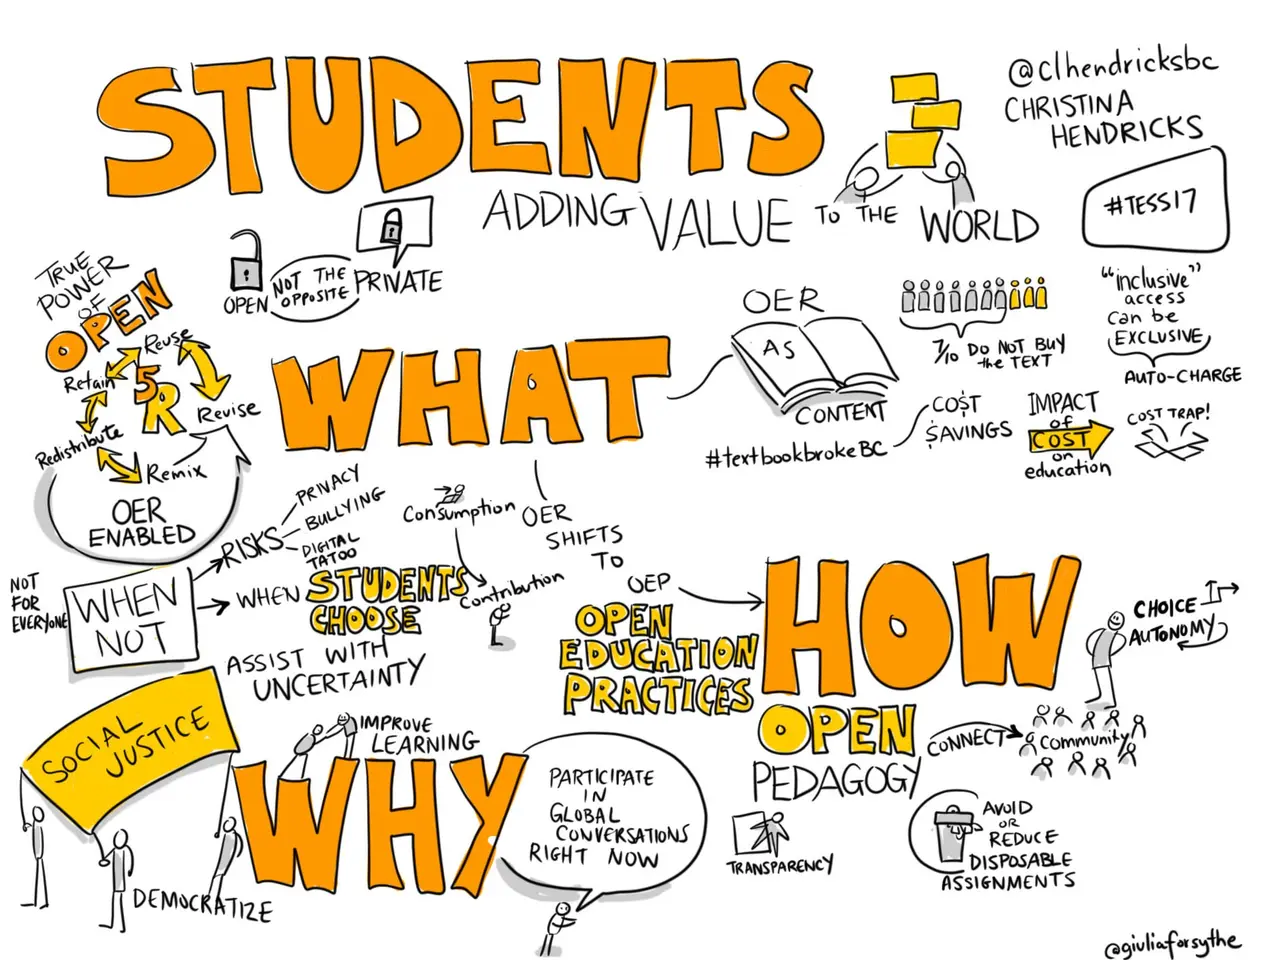 STUDENTS
ADDING VALUE TO THE WORLD
@clhendricksbc
CHRISTINA
HENDRICKS
#TESS17
OPEN
NOT THE
OPPOSITE
PRIVATE
TRUE
POWER
OF
OPEN
5R
Reuse
Revise
Remix
Redistribute
Retain
OER
ENABLED
WHAT
OER
AS
CONTENT
7/10 DO NOT BUY
the TEXT
#textbookbrokeBC
CO$T
$AVINGS
IMPACT
of
COST
on
education
"inclusive"
access
can be
EXCLUSIVE
AUTO-CHARGE
COST TRAP!
Consumption
Contribution
OER
SHIFTS
TO
OEP
OPEN
EDUCATION
PRACTICES
NOT
FOR
EVERYONE
WHEN
NOT
RISKS
PRIVACY
BULLYING
DIGITAL
TATOO
WHEN STUDENTS
CHOOSE
ASSIST WITH
UNCERTAINTY
HOW
CHOICE
AUTONOMY
OPEN
PEDAGOGY
CONNECT
Community
TRANSPARENCY
AVOID
OR
REDUCE
DISPOSABLE
ASSIGNMENTS
SOCIAL
JUSTICE
DEMOCRATIZE
WHY
IMPROVE
LEARNING
PARTICIPATE
IN
GLOBAL
CONVERSATIONS
RIGHT NOW
@giuliaforsythe